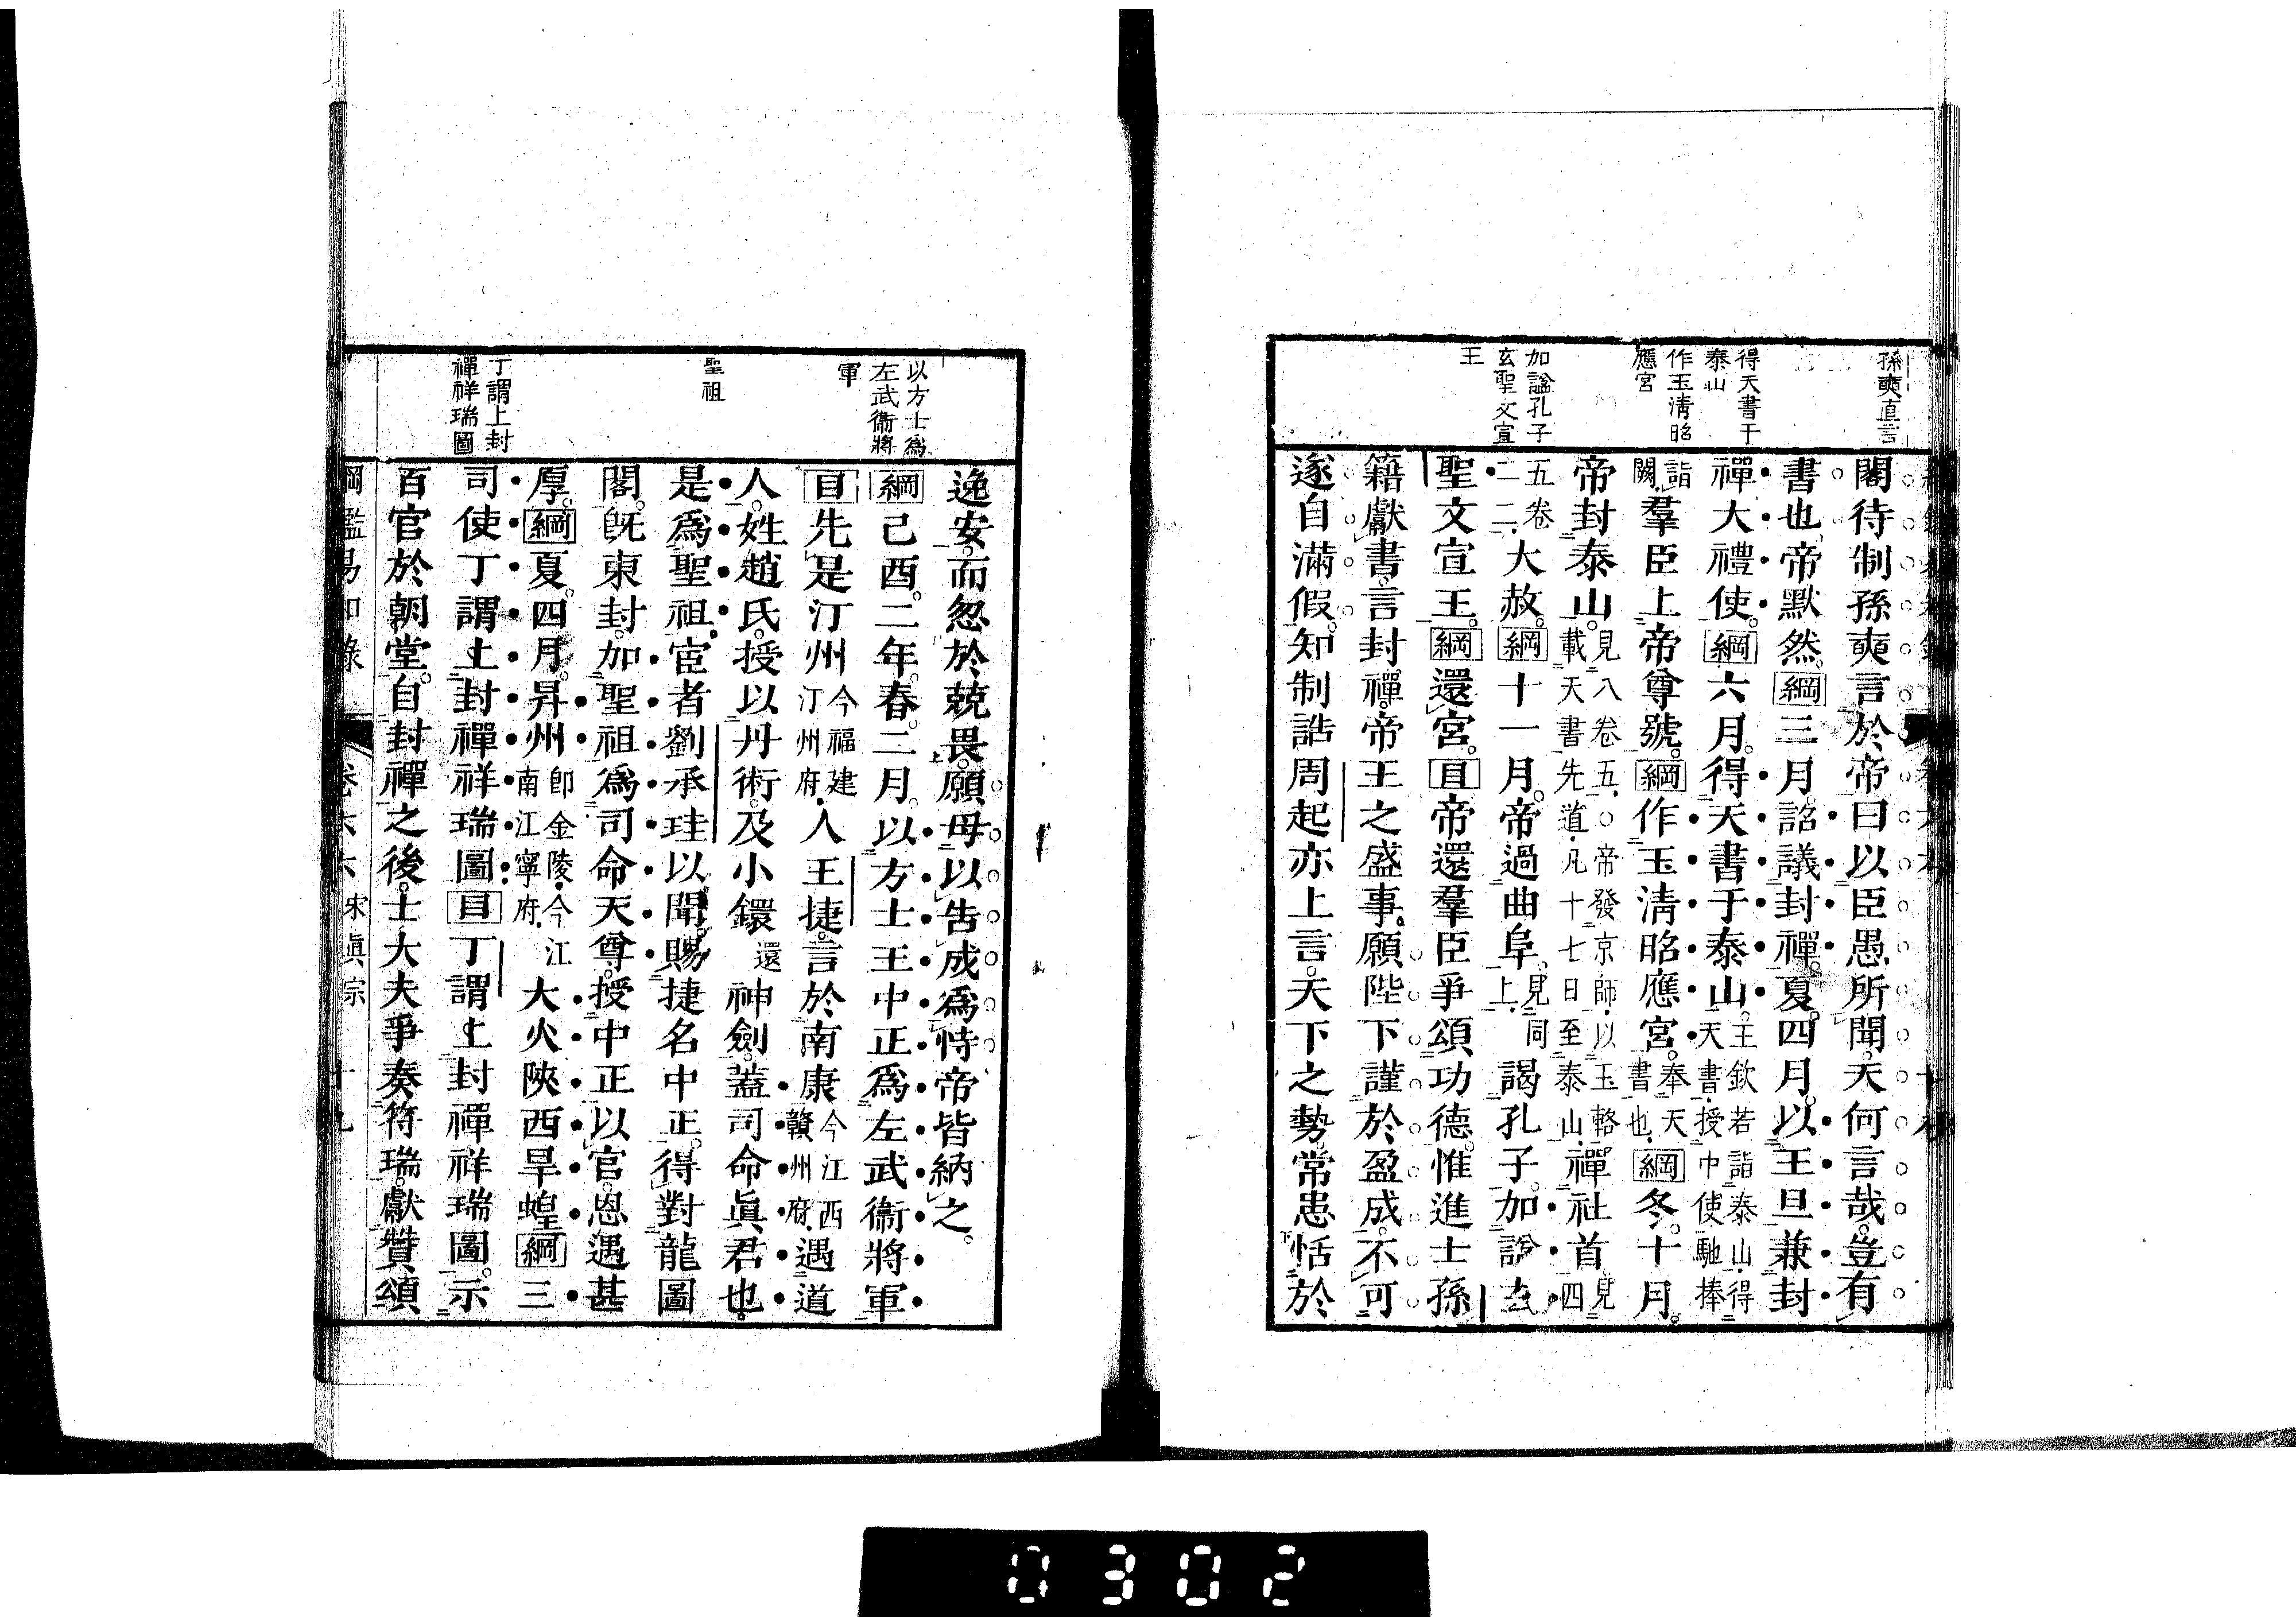 孫奭直言
得天書于
泰山
作玉清昭
應宮
加諡孔子
玄聖文宣
王
閣待制孫奭言於帝曰以臣愚所聞天何言哉豈有
書也帝默然綱三月詔議封禪夏四月以王旦兼封
禪大禮使綱六月得天書于泰山王欽若詣泰山得天書授中使馳捧
詣闕羣臣上帝尊號綱作玉清昭應宮奉天書也綱冬十月
帝封泰山見八卷五○帝發京師以玉輅載天書先道凡十七日至泰山禪社首見四
五卷二二大赦綱十一月帝過曲阜見同上謁孔子加諡玄
聖文宣王綱還宮目帝還羣臣爭頌功德惟進士孫
籍獻書言封禪帝王之盛事願陛下謹於盈成不可
遂自滿假知制誥周起亦上言天下之勢常患恬於
以方士爲
左武衞將
軍
聖祖
丁謂上封
禪祥瑞圖
逸安而忽於兢畏願毋以告成爲恃帝皆納之
綱己酉二年春二月以方士王中正爲左武衞將軍
目先是汀州今福建汀州府人王捷言於南康今江西贛州府遇道
人姓趙氏授以丹術及小鐶還神劍蓋司命眞君也
是爲聖祖宦者劉承珪以聞賜捷名中正得對龍圖
閣旣東封加聖祖爲司命天尊授中正以官恩遇甚
厚綱夏四月昇州卽金陵今江南江寧府大火陝西旱蝗綱三
司使丁謂上封禪祥瑞圖目丁謂上封禪祥瑞圖示
百官於朝堂自封禪之後士大夫爭奏符瑞獻贊頌
綱鑑易知錄 卷六六 宋眞宗 十九
0302